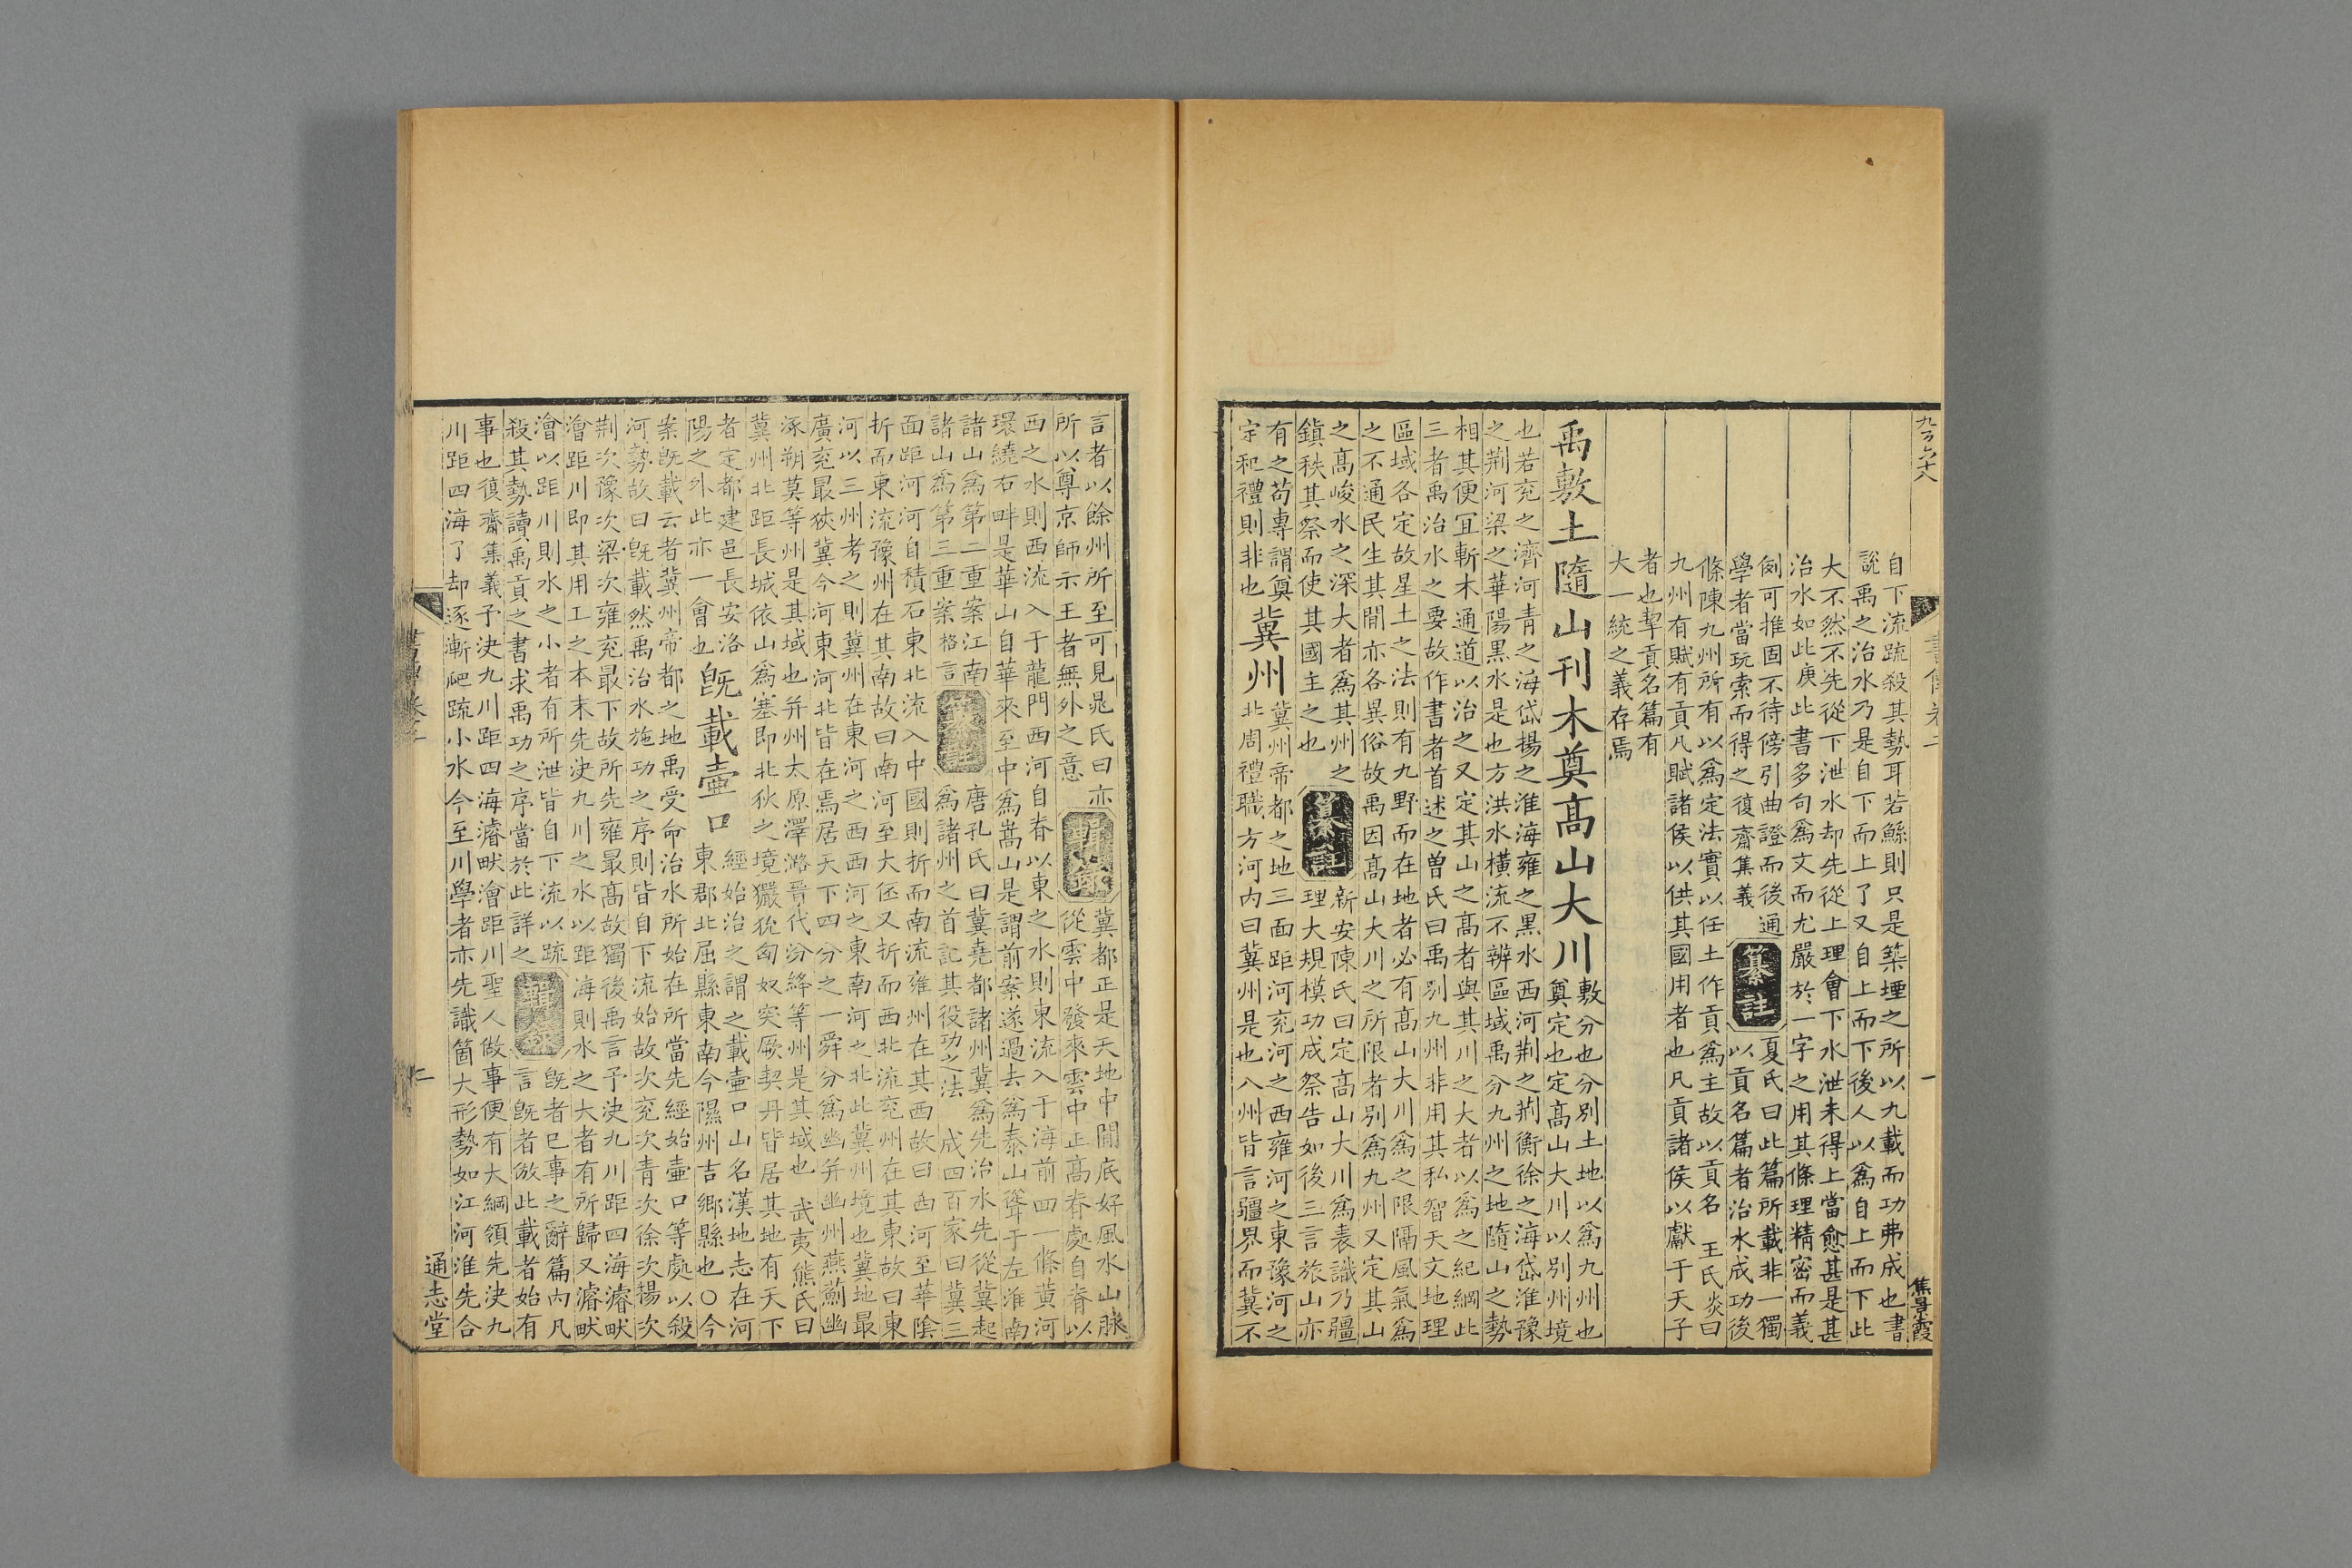 書傳卷二
一
焦景霞
自下流疏殺其勢耳若鯀則只是築堙之所以九載而功弗成也書
說禹之治水乃是自下而上了又自上而下後人以爲自上而下此
大不然不先從下泄水却先從上理會下水泄未得上當愈甚是甚
治水如此庚此書多句爲文而尤嚴於一字之用其條理精密而義
例可推固不待傍引曲證而後通
學者當玩索而得之復齋集義
纂註
夏氏曰此篇所載非一獨
以貢名篇者治水成功後
條陳九州所有以爲定法實以任土作貢爲主故以貢名 王氏炎曰
九州有賦有貢凡賦諸侯以供其國用者也凡貢諸侯以獻于天子
者也挈貢名篇有
大一統之義存焉
禹敷土隨山刊木奠高山大川
敷分也分別土地以爲九州也
奠定也定高山大川以別州境
也若兗之濟河青之海岱揚之淮海雍之黑水西河荆之荆衡徐之海岱淮豫
之荆河梁之華陽黑水是也方洪水橫流不辨區域禹分九州之地隨山之勢
相其便宜斬木通道以治之又定其山之高者與其川之大者以爲之紀綱此
三者禹治水之要故作書者首述之曽氏曰禹別九州非用其私智天文地理
區域各定故星土之法則有九野而在地者必有高山大川爲之限隔風氣爲
之不通民生其間亦各異俗故禹因高山大川之所限者別爲九州又定其山
之高峻水之深大者爲其州之
鎮秩其祭而使其國主之也
纂註
新安陳氏曰定高山大川爲表識乃疆
理大規模功成祭告如後三言旅山亦
有之苟專謂奠
定祀禮則非也
冀州
冀州帝都之地三面距河兗河之西雍河之東豫河之
北周禮職方河內曰冀州是也八州皆言疆界而冀不
言者以餘州所至可見晁氏曰亦
所以尊京師示王者無外之意
輯錄
冀都正是天地中間底好風水山脉
從雲中發來雲中正高脊處自脊以
西之水則西流入于龍門西河自脊以東之水則東流入于海前四一條黄河
環繞右畔是華山自華來至中爲嵩山是謂前案遂過去爲泰山聳于左淮南
諸山爲第二重案江南
諸山爲第三重案格言
纂註
唐孔氏曰冀堯都諸州冀爲先治水先從冀起
爲諸州之首記其役功之法 成四百家曰冀三
面距河河自積石東北流入中國則折而南流雍州在其西故曰西河至華陰
折而東流豫州在其南故曰南河至大伾又折而西北流兗州在其東故曰東
河以三州考之則冀州在東河之西西河之東南河之北此冀州境也冀地最
廣兗最狹冀今河東河北皆在焉居天下四分之一舜分爲幽并幽州燕薊幽
涿朔莫等州是其域也并州太原澤潞晉代汾絳等州是其域也 武夷熊氏曰
冀州北距長城依山爲塞即北狄之境玁狁匈奴突厥契丹皆居其地有天下
者定都建邑長安洛
陽之外此亦一會也
旣載壺口
經始治之謂之載壺口山名漢地志在河
東郡北屈縣東南今隰州吉鄉縣也○今
案旣載云者冀州帝都之地禹受命治水所始在所當先經始壺口等處以殺
河勢故曰旣載然禹治水施功之序則皆自下流始故次兗次青次徐次揚次
荆次豫次梁次雍兗最下故所先雍最高故獨後禹言予決九川距四海濬畎
澮距川即其用工之本末先決九川之水以距海則水之大者有所歸又濬畎
澮以距川則水之小者有所泄皆自下流以疏
殺其勢讀禹貢之書求禹功之序當於此詳之
輯錄
旣者巳事之辭篇內凡
言旣者倣此載者始有
事也復齋集義予決九川距四海濬畎澮距川聖人做事便有大綱領先決九
川距四海了却逐漸爬疏小水今至川學者亦先識箇大形勢如江河淮先合
書傳卷二
二
通志堂